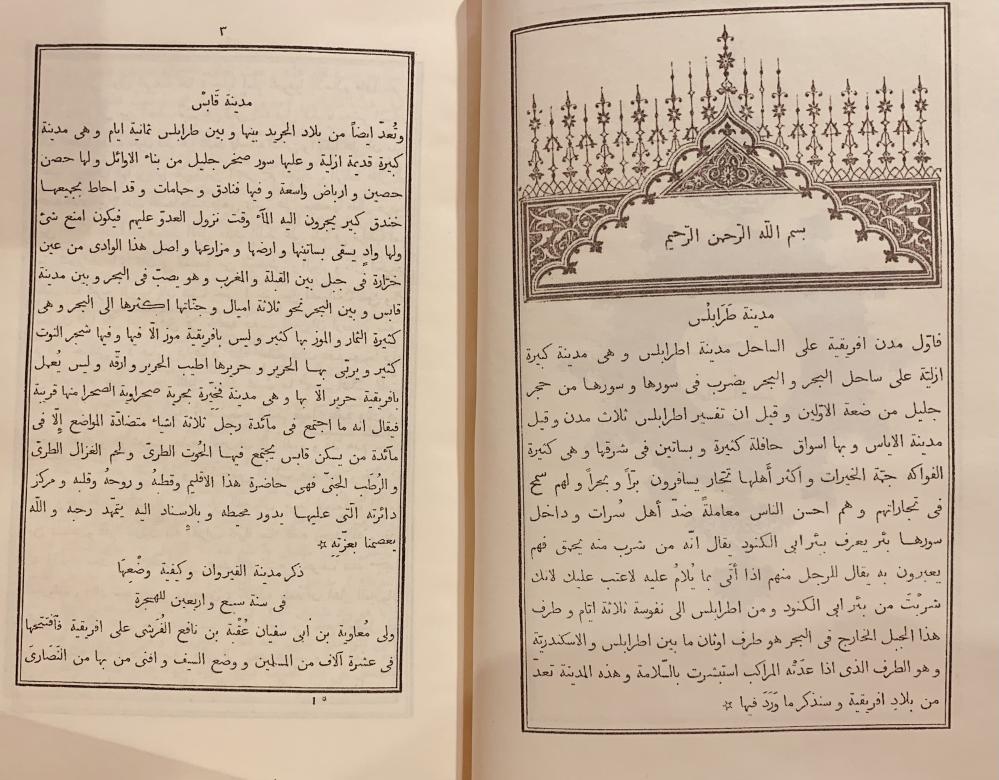 بسم الله الرّحمن الرّحيم
مدينة طَرَابلُس
فاوّل مدن افريقية على الساحل مدينة اطرابلس و هى مدينة كبيرة
ازليّة على ساحل البحر و البحر يضرب فى سورها و سورها من حجر
جليل من ضعة الاوّلين و قيل ان تفسير اطرابلس ثلاث مدن و قيل
مدينة الاياس و بها اسواق حافلة كثيرة و بساتين فى شرقها و هى كثيرة
الفواكه جمّة الخيرات و اكثر أهلها تجّار يسافرون برّاً و بحراً و لهم سمح
فى تجاراتهم و هم احسن الناس معاملةً ضدّ أهل سُرات و داخل
سورها بئر يعرف ببئر ابى الكنود يقال انّه من شرب منه يحمق فهم
يعبرون به يقال للرجل منهم اذا أتى بما يُلامُ عليه لاعتب عليك لانك
شربْتَ من بئر ابى الكنود و من اطرابلس الى نفوسة ثلاثة ايّام و طرف
هذا الجبل الخارج فى البحر هو طرف اوثان ما بين اطرابلس و الاسكندريّة
و هو الطرف الذى اذا عدَتْه المراكب استبشرت بالسّلامة و هذه المدينة تعدّ
من بلادِ افريقية و سنذكر ما وَرَدَ فيها ☆
٣
مدينة قَابسْ
و تُعدّ ايضاً من بلاد الجريد بينها و بين طرابلس ثمانية ايام و هى مدينة
كبيرة قديمة ازلية و عليها سور صخر جليل من بناء الاوائل و لها حصن
حصين و ارباض واسعة و فيها فنادق و حمامات و قد احاط بجميعها
خندق كبير يجرون اليه المآء وقت نزول العدوّ عليهم فيكون امنع شئ
و لها وادٍ يسقى بساتينها و ارضها و مزارعها و اصل هذا الوادى من عين
خرّارة فى جبل بين القبلة و المغرب و هو يصبّ فى البحر و بين مدينة
قابس و بين البحر نحو ثلاثة اميال و جنّاتها اكثرها الى البحر و هى
كثيرة الثمار و الموز بها كثير و ليس بافريقية موز الّا فيها و فيها شجر التوت
كثير و يربّى بها الحرير و حريرها اطيب الحرير و ارقّه و ليس يُعمل
بافريقية حرير الّا بها و هى مدينة بحرية صحراوية الصحرا منها قريبة
فيقال انه ما اجتمع فى مآئدة رجل ثلاثة اشياء متضادّة المواضع إلّا فى
مآئدة من يسكن قابس يجتمع فيها الحُوت الطرىّ و لحم الغزال الطرىّ
و الرُطَب الجنىّ فهى حاضرة هذا الاقليم وقطبُه و روحُه وقلبه و مركز
دائرته الّتى عليها يدور محيطه و بالإسناد اليه يتمهّد رحبه و اللّه
يعصمنا بعزّتِهِ ☆
ذكر مدينة القيروان و كيفية وضْعِهَا
فى سنة سبع و اربعين للهجرة
ولى مُعاوية بن أبى سفيان عُقْبة بن نافع القُرَشى على افريقية فَآفتتحها
فى عشرة آلاف من المسلمين و وضع السيف و افنى من بها من النّصَارَى